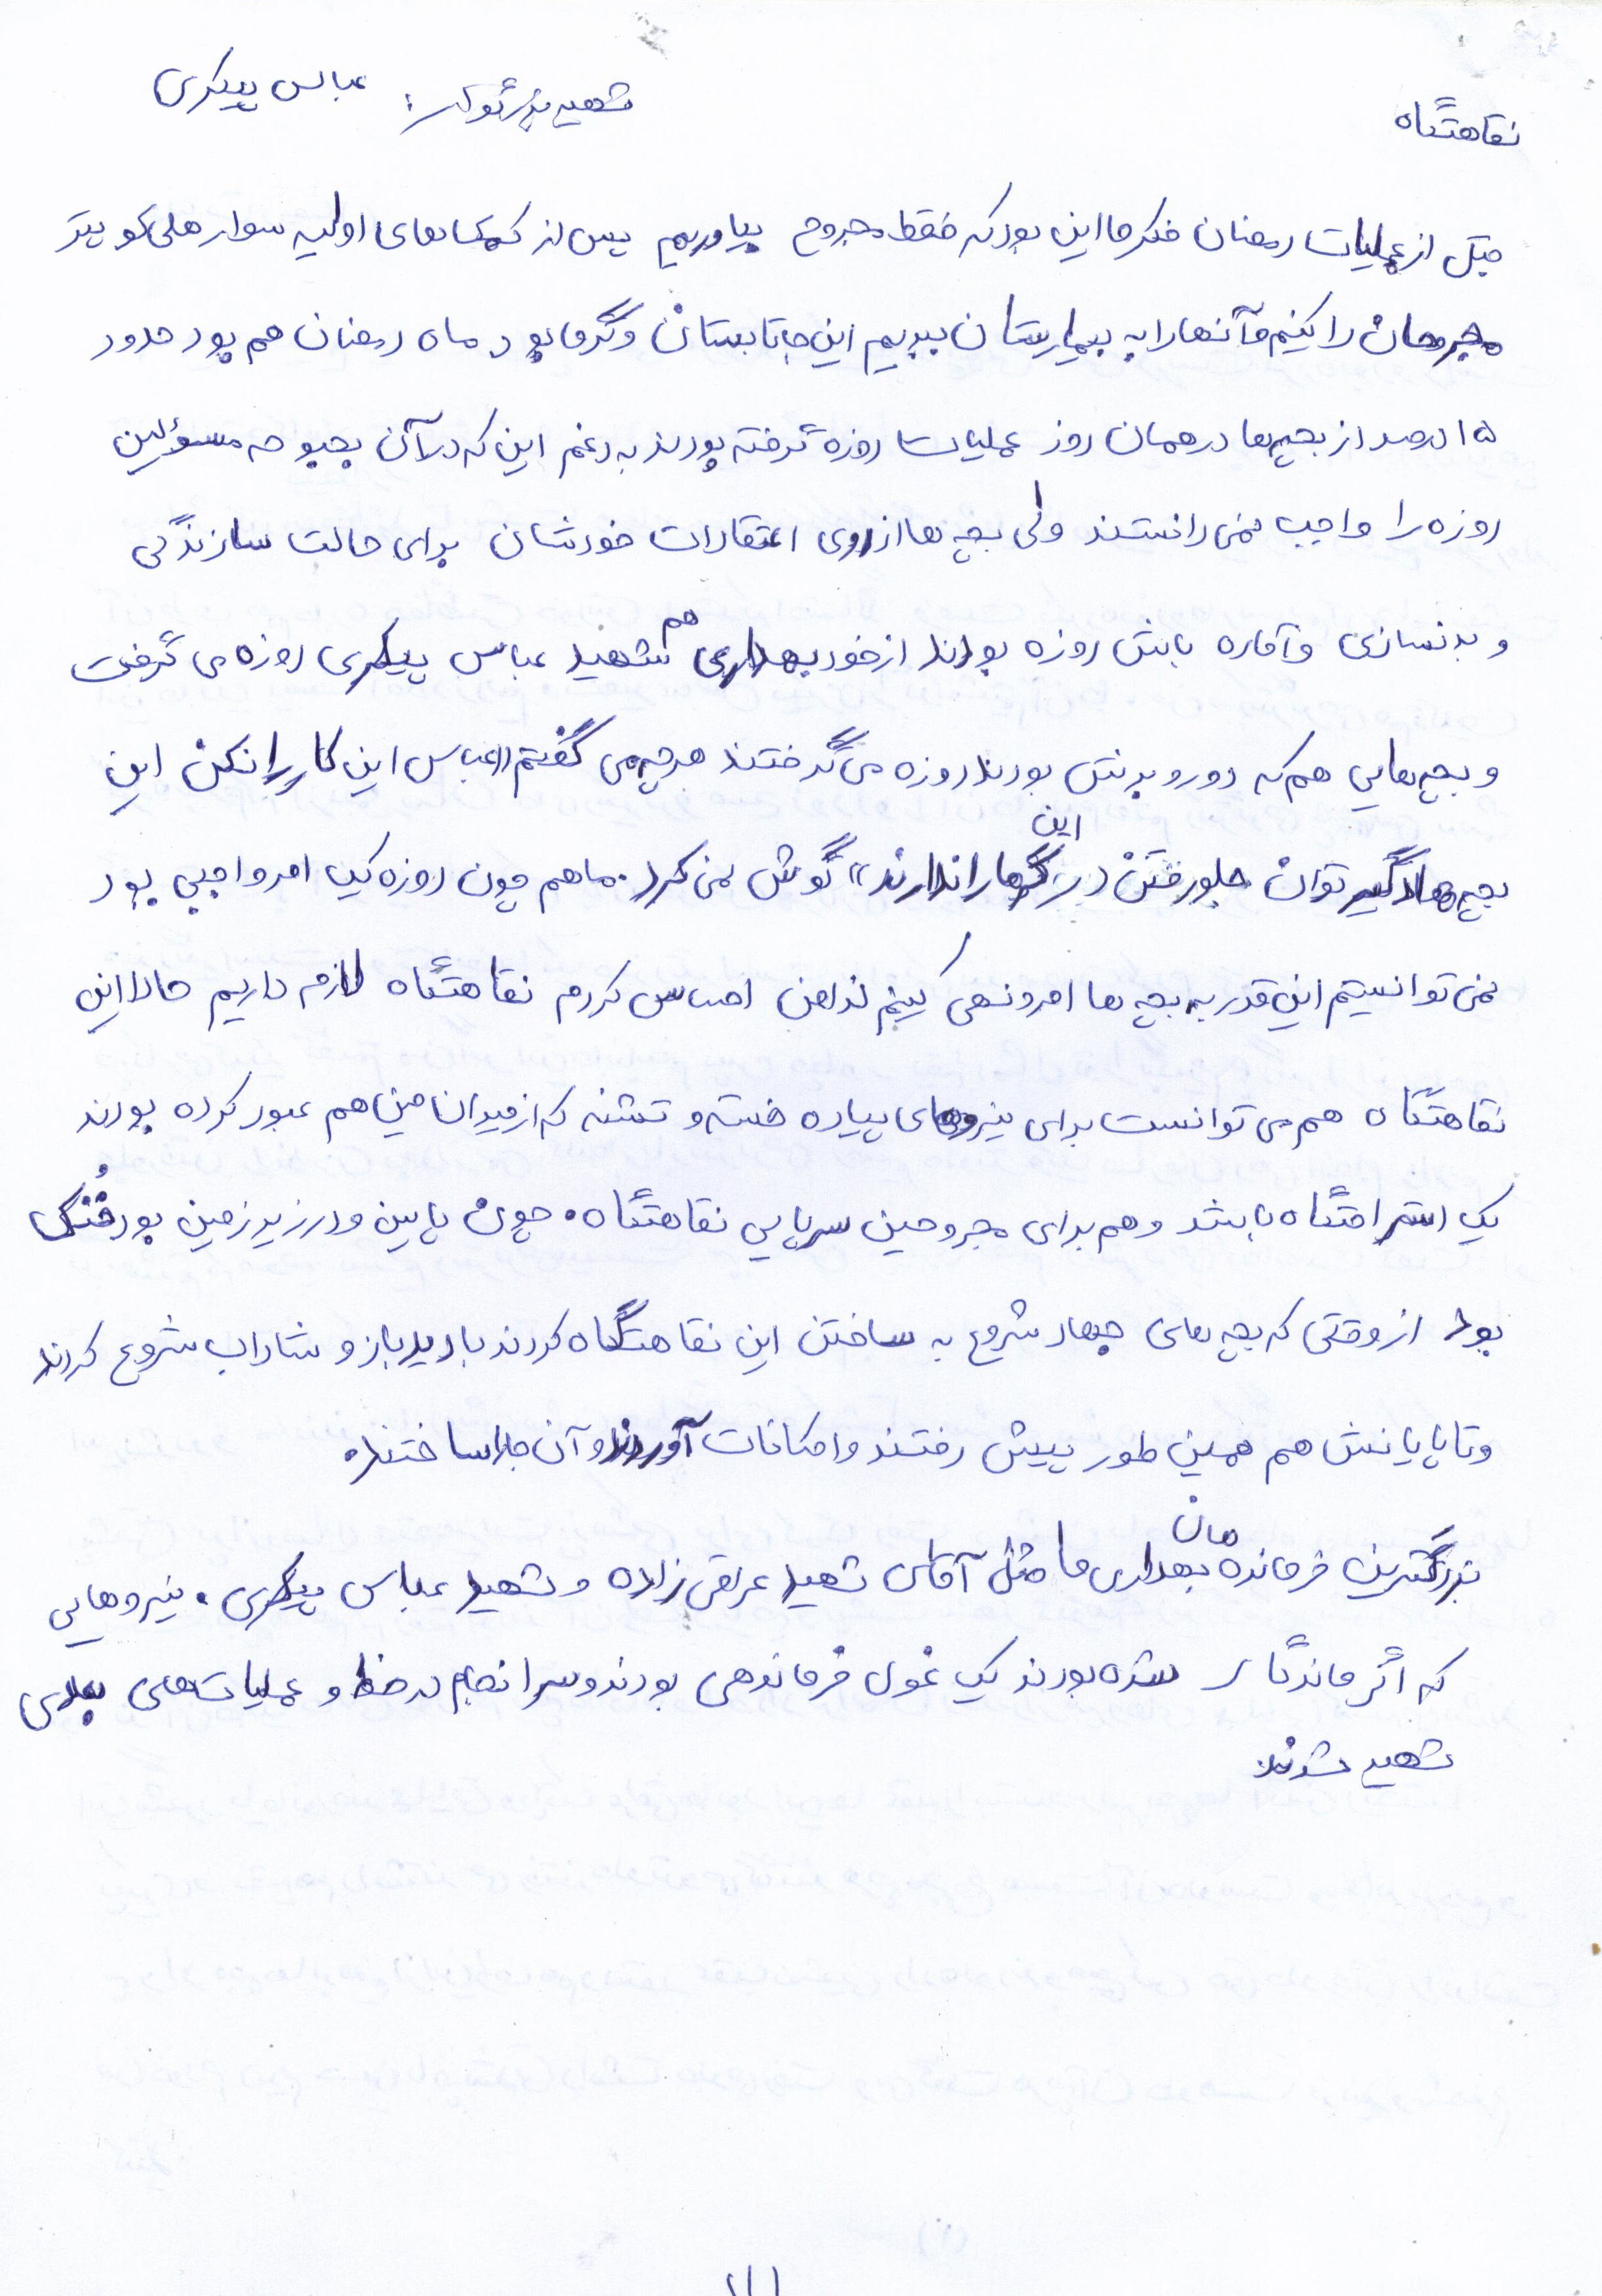 نقاهتگاه
شهید بزرگوار: عباس پیکری
قبل از عملیات رمضان فکر ما این بود که فقط مجروح بیاوریم پس از کمک‌های اولیه سوار هلی‌کوپتر
مجروحان را کنیم و آنها را به بیمارستان ببریم این‌جا تابستان و گرما بود ماه رمضان هم بود حدود
۱۵ درصد از بچه‌ها در همان روز عملیات روزه گرفته بودند به رغم این که در آن بحبوحه مسؤلین
روزه را واجب نمی‌دانستند ولی بچه‌ها از روی اعتقادات خودشان برای حالت سازندگی
و بدنسازی و آماده باش روزه بودند از خود بهداری هم شهید عباس پیکری روزه می گرفت
و بچه‌هایی هم که دور و برش بودند روزه می گرفتند هر چه می گفتم «عباس این کار را نکن این
بچه‌ها دیگر توان جلو رفتن در این گرما را ندارند» گوش نمی کرد. ما هم چون روزه یک امر واجبی بود
نمی توانستیم این قدر به بچه‌ها امر و نهی کنیم لذا من احساس کردم نقاهتگاه لازم داریم حالا این
نقاهتگاه هم می توانست برای نیروهای پیاده خسته و تشنه که از میدان مین هم عبور کرده بودند
یک استراحتگاه باشد و هم برای مجروحین سرپایی نقاهتگاه. چون پایین و در زیر زمین بود خُنک
بود از وقتی که بچه‌های جهاد شروع به ساختن این نقاهتگاه کردند با دید باز و شاداب شروع کردند
و تا پایانش هم همین طور پیش رفتند و امکانات آوردند و آن جا را ساختند.
بزرگترین فرمانده‌مان بهداری ما مثل آقای شهید عراقی زاده و شهید عباس پیکری. نیروهایی
که اگر ماندگار شده بودند یک غول فرماندهی بودند و سرانجام در خط و عملیات‌های بعدی
شهید شدند.